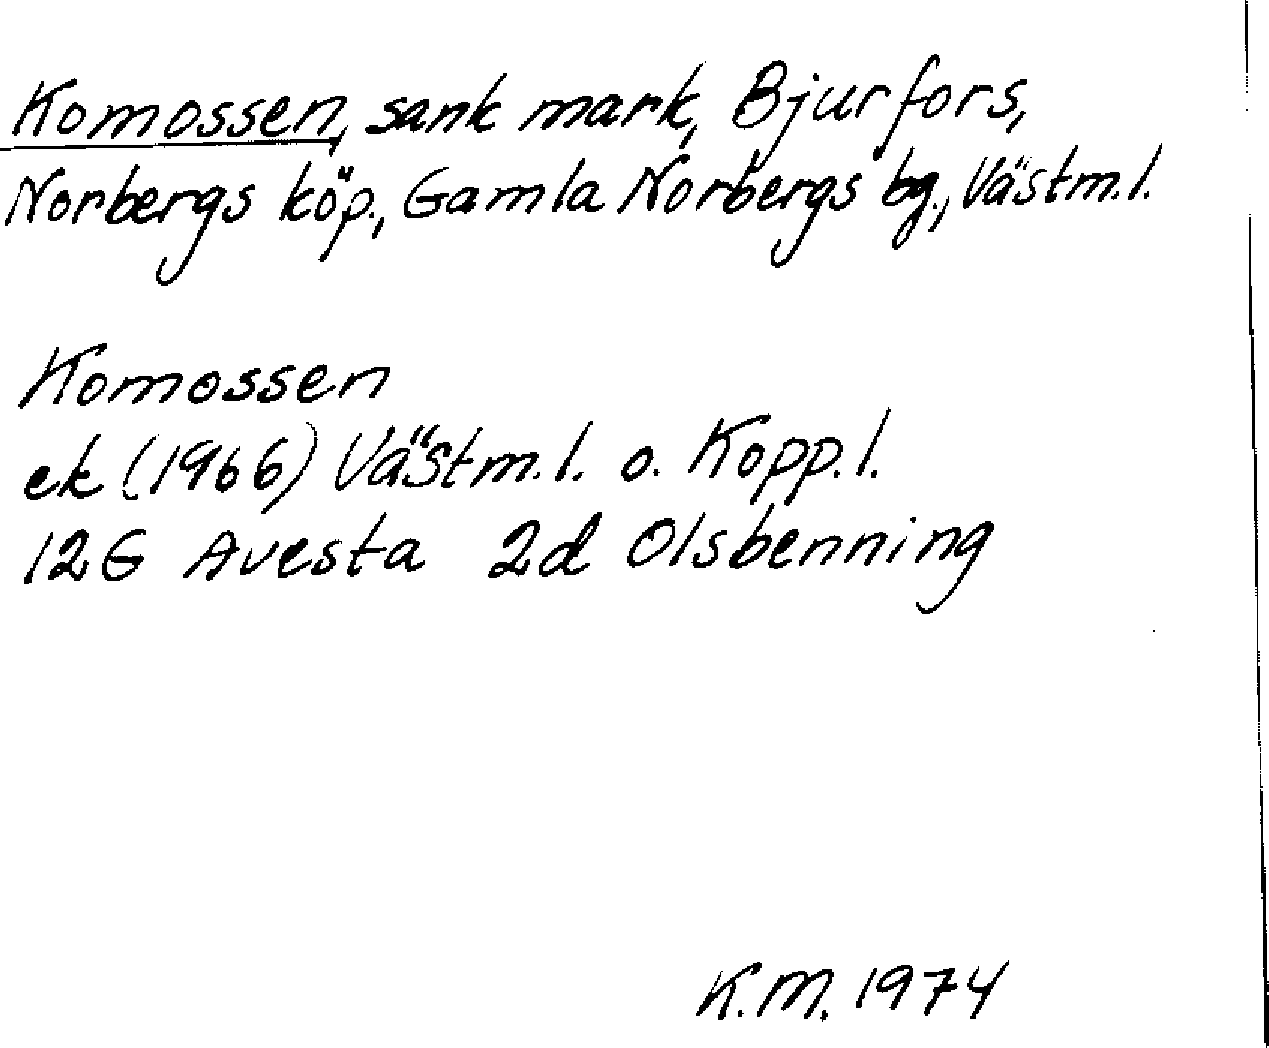 Komossen, sank mark, Bjurfors,
Norbergs köp., Gamla Norbergs bg., Västm.l.
Komossen
ek (1966) Västm.l. o. Kopp.l.
12G Avesta 2d Olsbenning
K.M. 1974